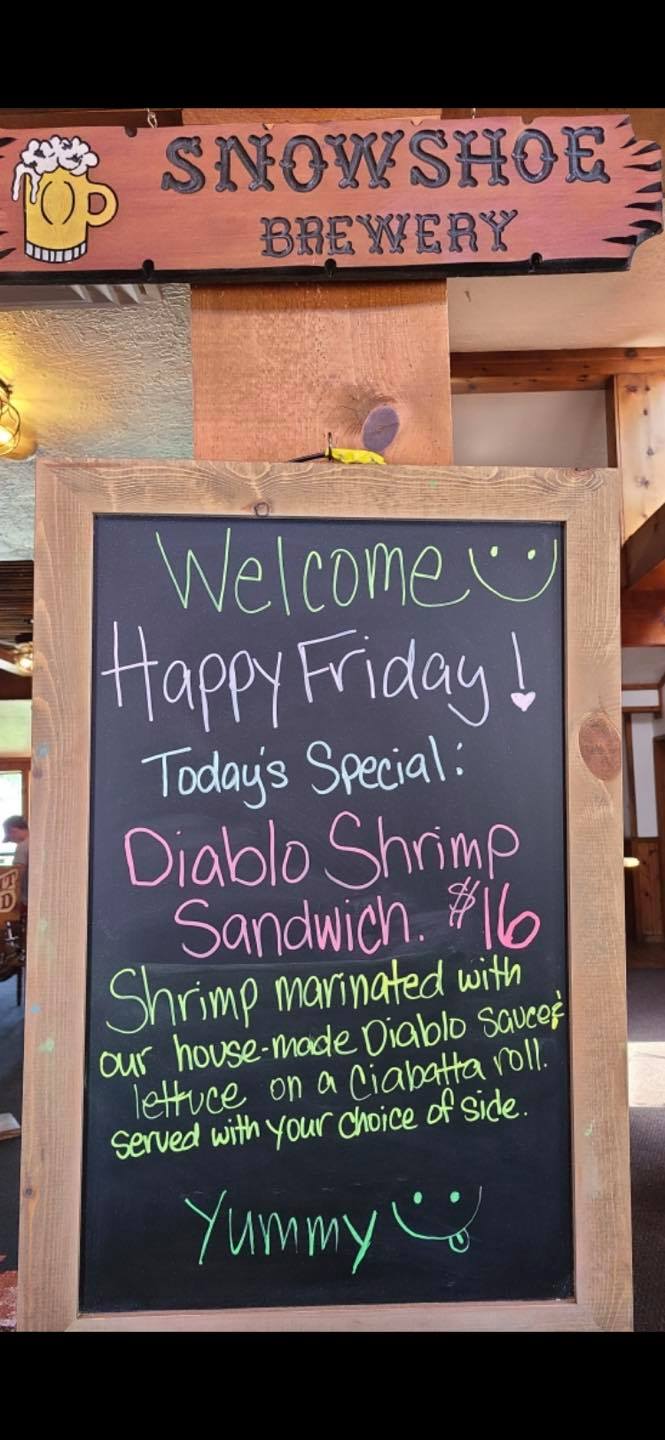 SNOWSHOE
BREWERY
Welcome
Happy Friday!
Today's Special:
Diablo Shrimp
Sandwich. $16
Shrimp marinated with
our house-made Diablo sauce &
lettuce on a Ciabatta roll.
served with your choice of side.
Yummy